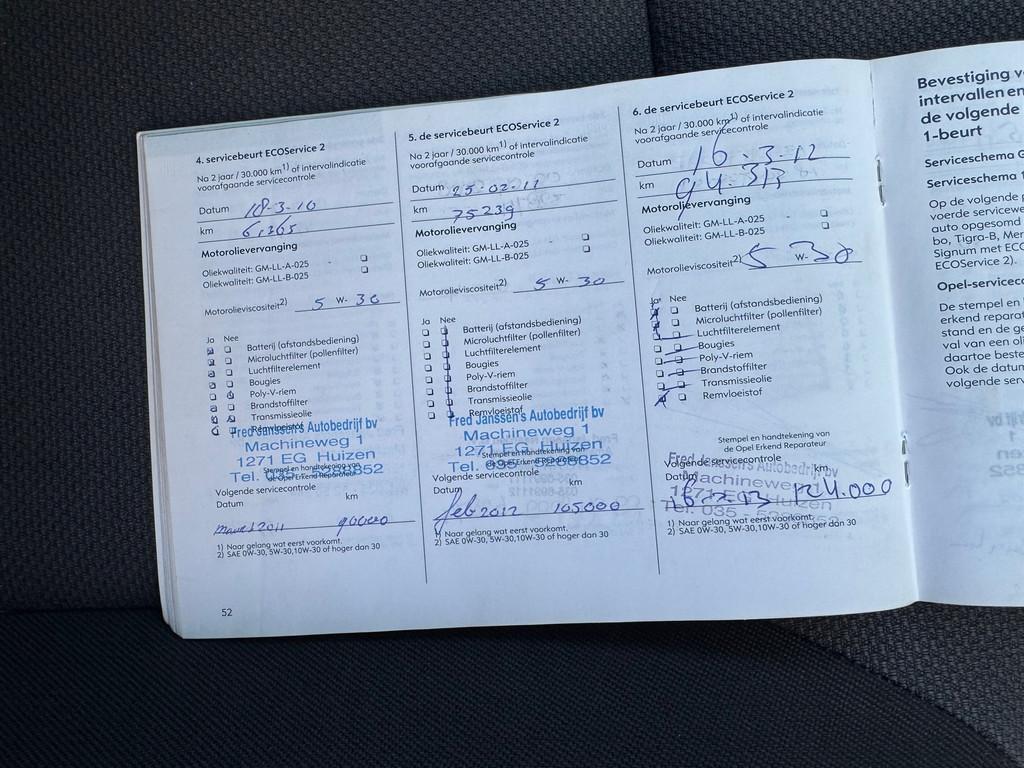 4. servicebeurt ECOService 2
Na 2 jaar / 30.000 km1) of intervalindicatie
voorafgaande servicecontrole
Datum 18-3-10
km 61265
Motorolievervanging
Oliekwaliteit: GM-LL-A-025
Oliekwaliteit: GM-LL-B-025
Motorolieviscositeit2) 5 W- 30
Ja Nee
Batterij (afstandsbediening)
Microluchtfilter (pollenfilter)
Luchtfilterelement
Bougies
Poly-V-riem
Brandstoffilter
Transmissieolie
Remvloeistof
Fred Janssen's Autobedrijf bv
Machineweg 1
1271 EG Huizen
Tel. 035 - 5268852
Stempel en handtekening van
de Opel Erkend Reparateur
Volgende servicecontrole
Datum km
maart 2011 90000
1) Naar gelang wat eerst voorkomt.
2) SAE 0W-30, 5W-30, 10W-30 of hoger dan 30
52
5. de servicebeurt ECOService 2
Na 2 jaar / 30.000 km1) of intervalindicatie
voorafgaande servicecontrole
Datum 25-02-11
km 75239
Motorolievervanging
Oliekwaliteit: GM-LL-A-025
Oliekwaliteit: GM-LL-B-025
Motorolieviscositeit2) 5 W- 30
Ja Nee
Batterij (afstandsbediening)
Microluchtfilter (pollenfilter)
Luchtfilterelement
Bougies
Poly-V-riem
Brandstoffilter
Transmissieolie
Remvloeistof
Fred Janssen's Autobedrijf bv
Machineweg 1
1271 EG Huizen
Tel. 035 - 5268852
Stempel en handtekening van
de Opel Erkend Reparateur
Volgende servicecontrole
Datum km
feb 2012 105.000
1) Naar gelang wat eerst voorkomt.
2) SAE 0W-30, 5W-30, 10W-30 of hoger dan 30
6. de servicebeurt ECOService 2
Na 2 jaar / 30.000 km1) of intervalindicatie
voorafgaande servicecontrole
Datum 16-3-12
km 94.313
Motorolievervanging
Oliekwaliteit: GM-LL-A-025
Oliekwaliteit: GM-LL-B-025
Motorolieviscositeit2) 5 W- 30
Ja Nee
Batterij (afstandsbediening)
Microluchtfilter (pollenfilter)
Luchtfilterelement
Bougies
Poly-V-riem
Brandstoffilter
Transmissieolie
Remvloeistof
Stempel en handtekening van
de Opel Erkend Reparateur
Fred Janssen's Autobedrijf bv
Volgende servicecontrole
Datum km
Machineweg 1
124.000
1271 EG Huizen
Tel. 035 -
1) Naar gelang wat eerst voorkomt.
2) SAE 0W-30, 5W-30, 10W-30 of hoger dan 30
Bevestiging
intervallen en
de volgende
1-beurt
Serviceschema
Serviceschema
Op de volgende
voerde servicewe
auto opgesomd
bo, Tigra-B, Mer
Signum met ECO
ECOService 2).
Opel-serviceco
De stempel en
erkend reparat
stand en de ge
val van een oli
daartoe beste
Ook de datum
volgende serv